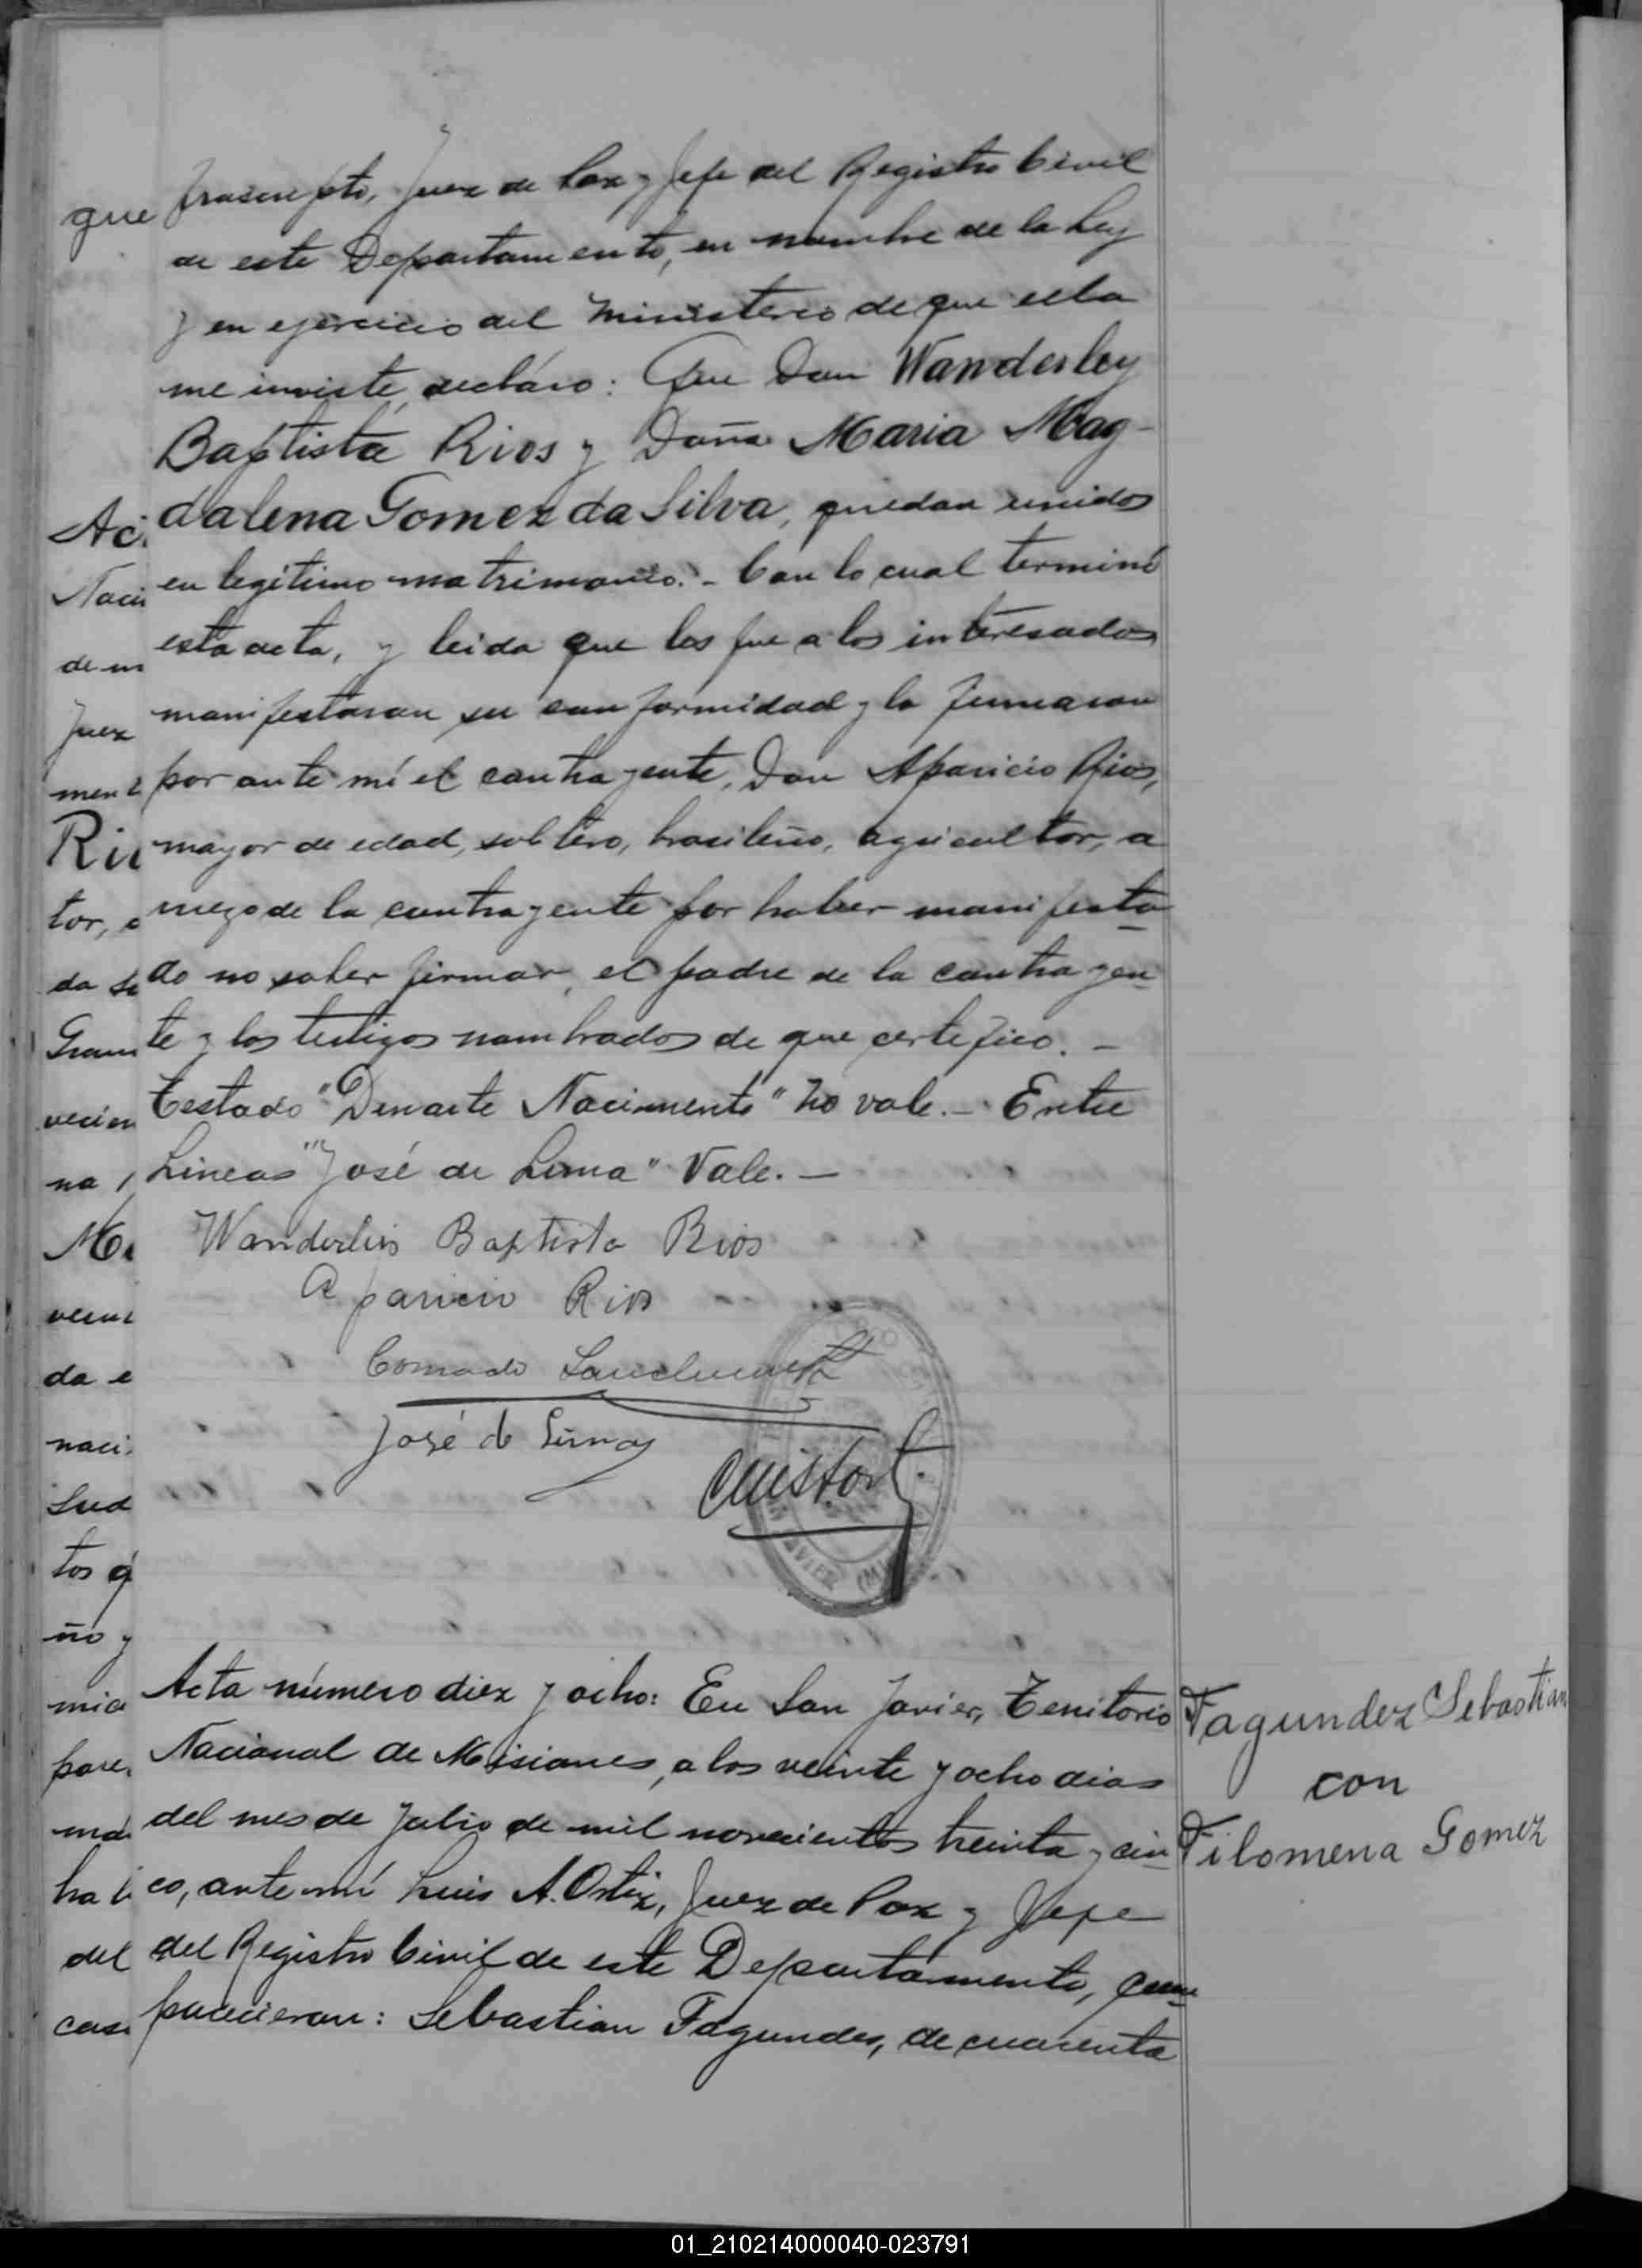 frascripto, Juez de Paz y Jefe del Registro Civil
de este Departamento, en nombre de la Ley
y en ejercicio del Ministerio de que ella
me inviste, decláro: Que Don Wanderley
Baptista Rios y Doña Maria Mag-
dalena Gomez da Silva, quedan unidos
en legítimo matrimonio.- Con lo cual terminó
esta acta, y leida que les fue a los interesados
manifestaron su conformidad y la firmaron
por ante mí el contrayente, Don Aparicio Rios,
mayor de edad, soltero, brasileño, agricultor, a
ruego de la contrayente por haber manifesta
do no saber firmar, el padre de la contrayen
te y los testigos nombrados de que certifico. -
Testado "Denarte Nacimento" no vale.- Entre
Lineas "José de Lima" Vale. -
Wanderlin Baptista Rios
Aparicio Rios
Conrado
José de Lima
Acta número diez y ocho: En San Javier, Territorio
Nacional de Misiones, a los veinte y ocho dias
del mes de Julio de mil novecientos treinta y cin
co, ante mí Luis A. Ortiz, Juez de Paz y Jefe
del Registro Civil de este Departamento, com
parecieron: Sebastian Fagundes, de cuarenta
Fagundez Sebastian
con
Filomena Gomez
que
Ac
Naci
de m
Juez
ment
Ri
tor,
da
veci
na
da e
naci
Sud
tos q
ño y
mia
pare
ma
ha
del
cas
01_210214000040-023791